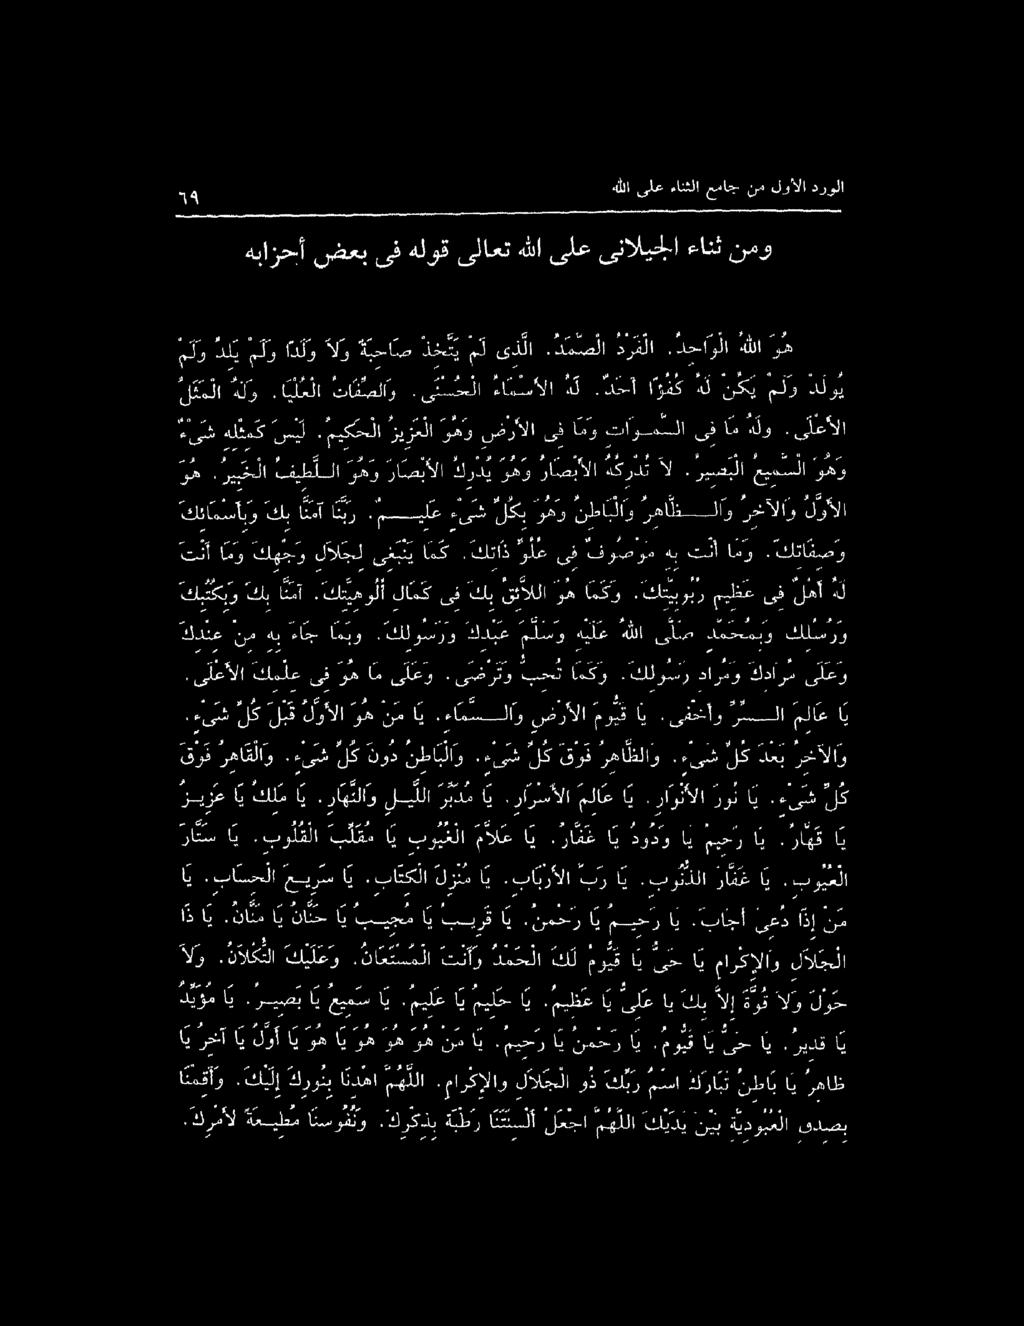 الورد الأول من جامع الثناء على الله
٦٩
ومن ثناء الجيلانى على الله تعالى قوله فى بعض أحزابه
هُوَ اللهُ الْوَاحِدُ. الْفَرْدُ الصَّمَدُ. الَّذِى لَمْ يَتَّخِذْ صَاحِبَةً وَلاَ وَلَدًا وَلَمْ يَلِدْ وَلَمْ
يُولَدْ وَلَمْ يَكُنْ لَهُ كُفُؤًا أَحَدٌ. لَهُ الأَسْمَاءُ الْحُسْنَى. وَالصِّفَاتُ الْعُلْيَا. وَلَهُ الْمَثَلُ
الأَعْلَى. وَلَهُ مَا فِى السَّمَوَاتِ وَمَا فِى الأَرْضِ وَهُوَ الْعَزِيزُ الْحَكِيمُ. لَيْسَ كَمِثْلِهِ شَىْءٌ
وَهُوَ السَّمِيعُ الْبَصِيرُ. لاَ تُدْرِكُهُ الأَبْصَارُ وَهُوَ يُدْرِكُ الأَبْصَارَ وَهُوَ اللَّطِيفُ الْخَبِيرُ. هُوَ
الأَوَّلُ وَالآخِرُ وَالظَّاهِرُ وَالْبَاطِنُ وَهُوَ بِكُلِّ شَىْءٍ عَلِيمٌ. رَبَّنَا آمَنَّا بِكَ وَبِأَسْمَائِكَ
وَصِفَاتِكَ. وَمَا أَنْتَ بِهِ مَوْصُوفٌ فِى عُلُوِّ ذَاتِكَ. كَمَا يَنْبَغِى لِجَلاَلِ وَجْهِكَ وَمَا أَنْتَ
لَهُ أَهْلٌ فِى عَظِيمِ رُبُوبِيَّتِكَ. وَكَمَا هُوَ اللاَّئِقُ بِكَ فِى كَمَالِ أُلُوهِيَّتِكَ. آمَنَّا بِكَ وَبِكُتُبِكَ
وَرُسُلِكَ وَبِمُحَمَّدٍ صَلَّى اللهُ عَلَيْهِ وَسَلَّمَ عَبْدِكَ وَرَسُولِكَ. وَبِمَا جَاءَ بِهِ مِنْ عِنْدِكَ
وَعَلَى مُرَادِكَ وَمُرَادِ رَسُولِكَ. وَكَمَا تُحِبُّ وَتَرْضَى. وَعَلَى مَا هُوَ فِى عِلْمِكَ الأَعْلَى.
يَا عَالِمَ السِّرِّ وَأَخْفَى. يَا قَيُّومَ الأَرْضِ وَالسَّمَاءِ. يَا مَنْ هُوَ الأَوَّلُ قَبْلَ كُلِّ شَىْءٍ.
وَالآخِرُ بَعْدَ كُلِّ شَىْءٍ. وَالظَّاهِرُ فَوْقَ كُلِّ شَىْءٍ. وَالْبَاطِنُ دُونَ كُلِّ شَىْءٍ. وَالْقَاهِرُ فَوْقَ
كُلِّ شَىْءٍ. يَا نُورَ الأَنْوَارِ. يَا عَالِمَ الأَسْرَارِ. يَا مُدَبِّرَ اللَّيْلِ وَالنَّهَارِ. يَا مَلِكُ يَا عَزِيزُ
يَا قَهَّارُ. يَا رَحِيمُ يَا وَدُودُ يَا غَفَّارُ. يَا عَلاَّمَ الْغُيُوبِ يَا مُقَلِّبَ الْقُلُوبِ. يَا سَتَّارَ
الْعُيُوبِ. يَا غَفَّارَ الذُّنُوبِ. يَا رَبَّ الأَرْبَابِ. يَا مُنْزِلَ الْكِتَابِ. يَا سَرِيعَ الْحِسَابِ. يَا
مَنْ إِذَا دُعِىَ أَجَابَ. يَا رَحِيمُ يَا رَحْمنُ. يَا قَرِيبُ يَا مُجِيبُ يَا حَنَّانُ يَا مَنَّانُ. يَا ذَا
الْجَلاَلِ وَالإِكْرَامِ يَا حَىُّ يَا قَيُّومُ لَكَ الْحَمْدُ وَأَنْتَ الْمُسْتَعَانُ. وَعَلَيْكَ التُّكْلاَنُ. وَلاَ
حَوْلَ وَلاَ قُوَّةَ إِلاَّ بِكَ يَا عَلِىُّ يَا عَظِيمُ. يَا حَلِيمُ يَا عَلِيمُ. يَا سَمِيعُ يَا بَصِيرُ. يَا مُؤَيِّدُ
يَا قَدِيرُ. يَا حَىُّ يَا قَيُّومُ. يَا رَحْمنُ يَا رَحِيمُ. يَا مَنْ هُوَ هُوَ هُوَ يَا هُوَ يَا أَوَّلُ يَا آخِرُ يَا
ظَاهِرُ يَا بَاطِنُ تَبَارَكَ اسْمُ رَبِّكَ ذُو الْجَلاَلِ وَالإِكْرَامِ. اللَّهُمَّ اهْدِنَا بِنُورِكَ إِلَيْكَ. وَأَقِمْنَا
بِصِدْقِ الْعُبُودِيَّةِ بَيْنَ يَدَيْكَ اللَّهُمَّ اجْعَلْ أَلْسِنَتَنَا رَطْبَةً بِذِكْرِكَ. وَنُفُوسَنَا مُطِيعَةً لأَمْرِكَ.